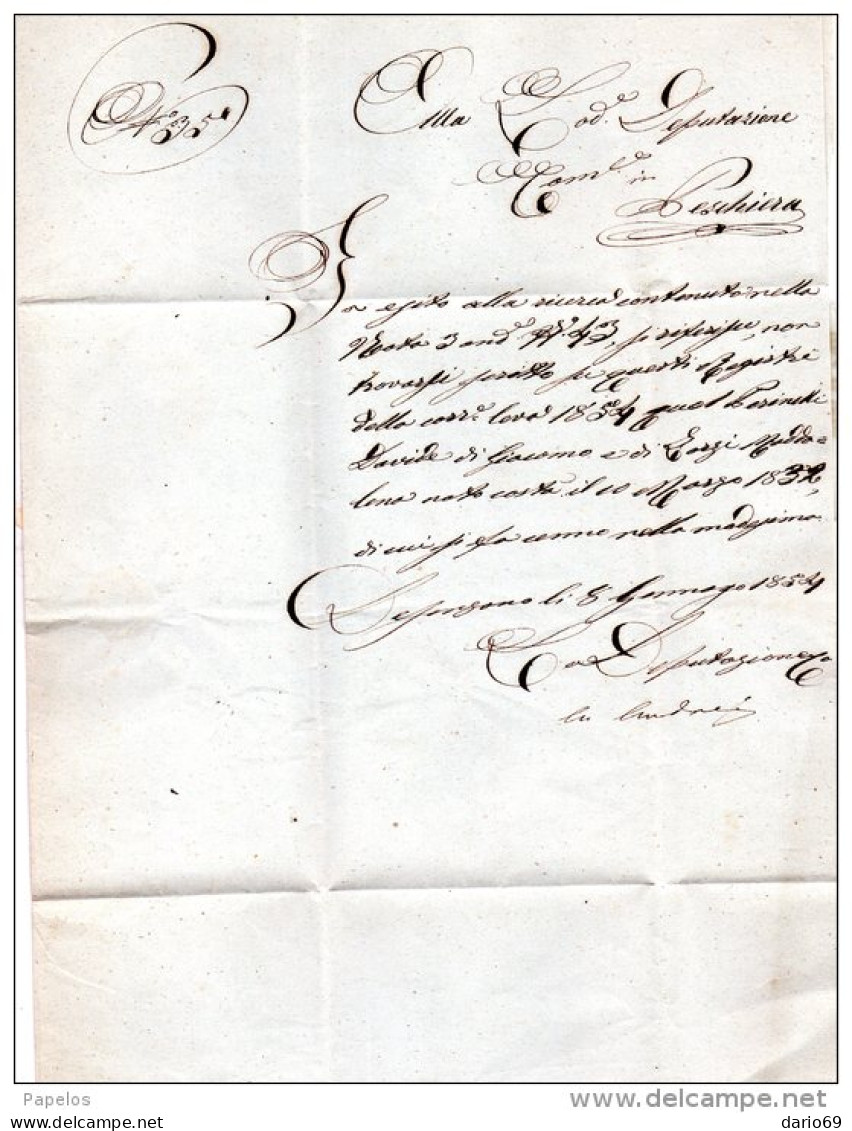 N.° 35
Alla Lod.e Deputazione
Com.le in
Peschiera
In esito alla ricerca contenuta nella
Nota 3 and.e N.° 43, si riferisce, non
trovarsi scritto su questi Registri
della corr.e leva 1854 quel
Davide di Giacomo e di Zorzi Madda=
lena nato costì il 10 Marzo 1832,
di cui si fa cenno nella medesima.
Desenzano li 8 Gennajo 1854
La Deputazione
Papelos
delcampe.net
dario69